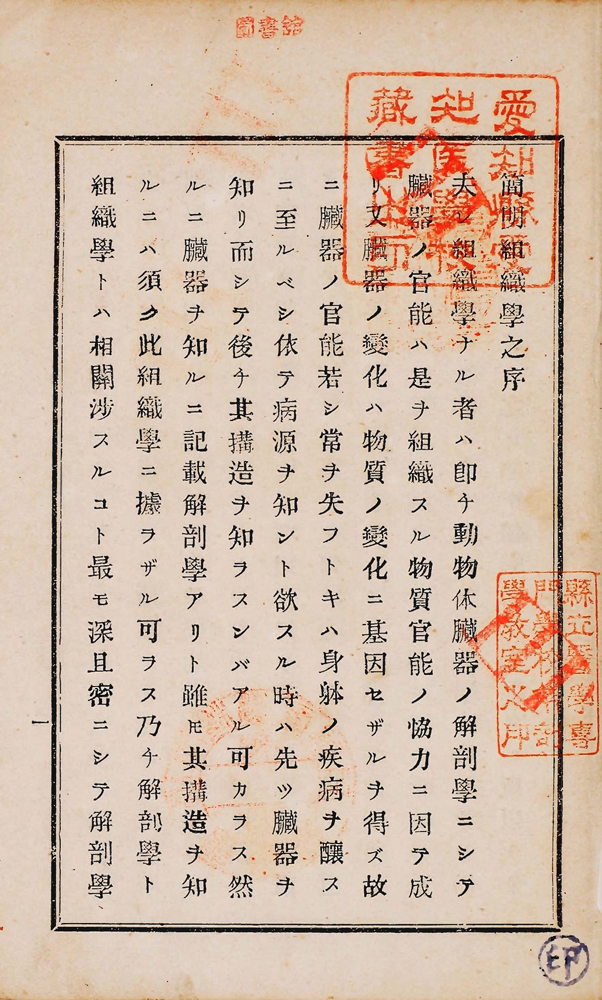 圖書館
愛知縣
知医學校
藏書之印
簡明組織學之序
夫レ組織學ナル者ハ即チ動物体臟器ノ解剖學ニシテ
臟器ノ官能ハ是ヲ組織スル物質官能ノ恊力ニ因テ成
リ又臟器ノ變化ハ物質ノ變化ニ基因セザルヲ得ズ故
ニ臟器ノ官能若シ常ヲ失フトキハ身躰ノ疾病ヲ釀ス
ニ至ルベシ依テ病源ヲ知ント欲スル時ハ先ツ臟器ヲ
知リ而シテ後チ其搆造ヲ知ラスンバアル可カラス然
ルニ臟器ヲ知ルニ記載解剖學アリト雖𪜈其搆造ヲ知
ルニハ須ク此組織學ニ據ラザル可ラス乃チ解剖學ト
組織學トハ相關渉スルコト最モ深且密ニシテ解剖學、
縣立醫學專
門學校
學教室之印
一
印